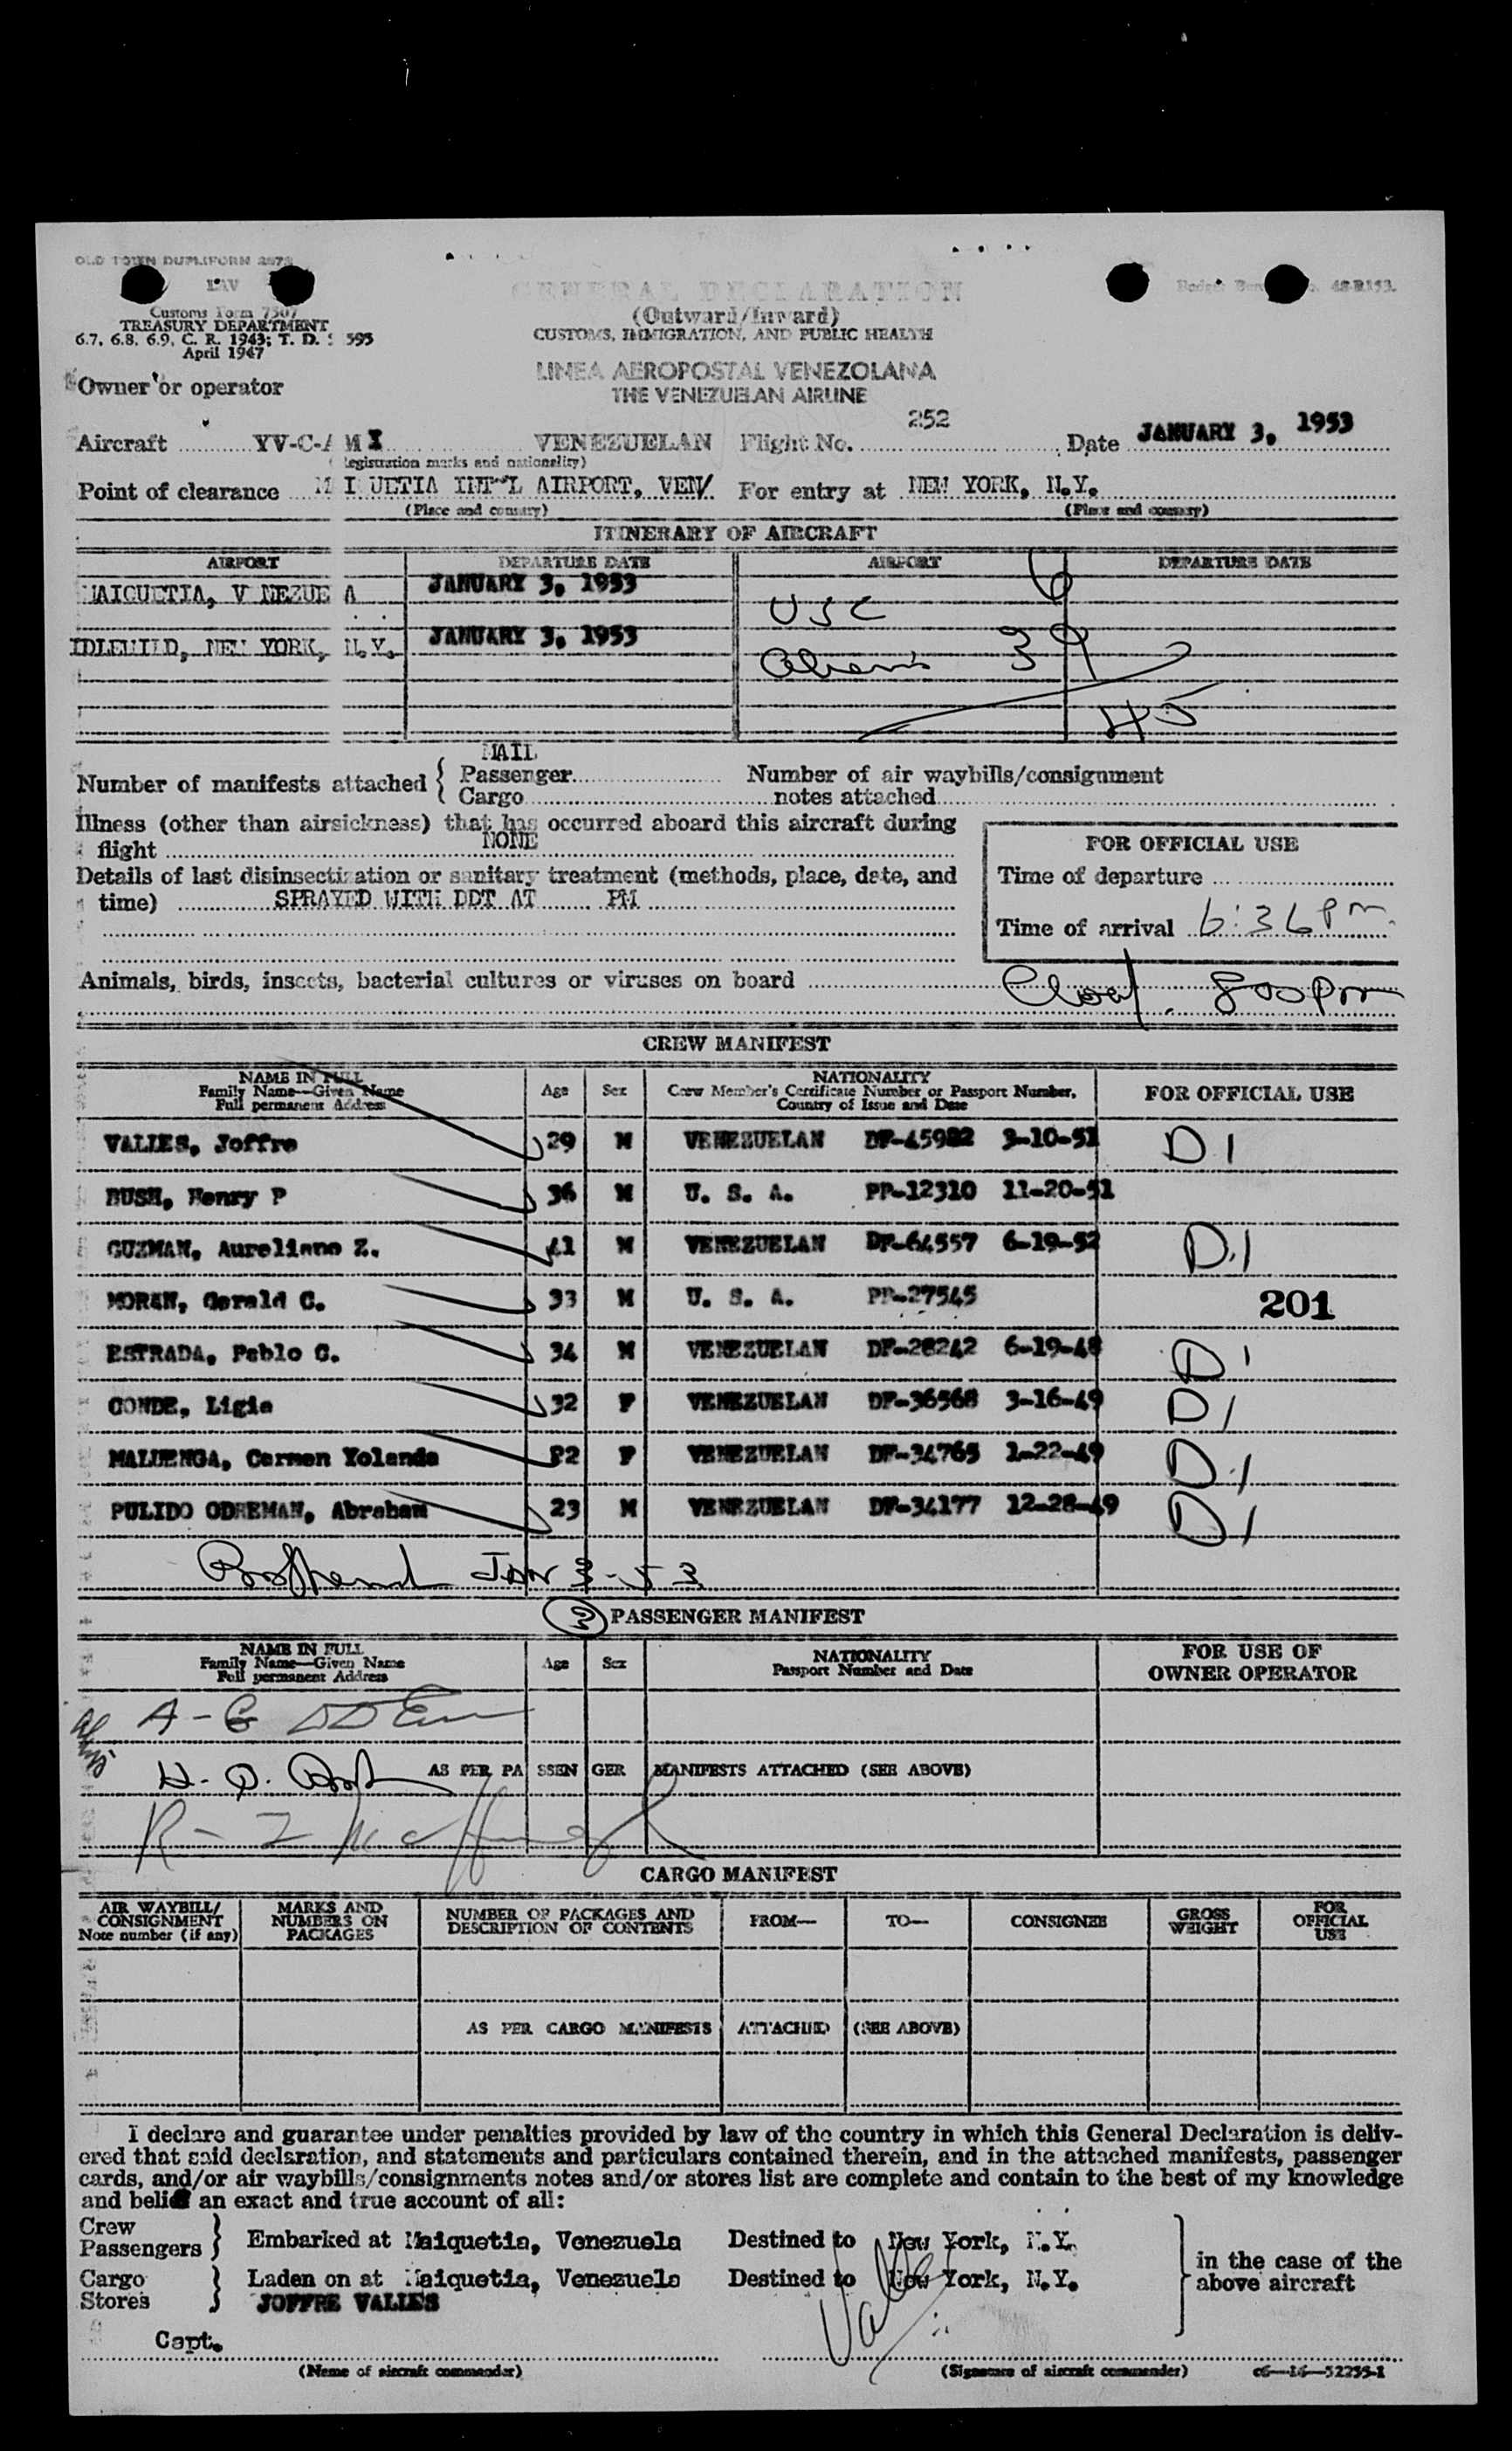 OLD TOWN DUPLIFORM
LAV
Customs Form 7507
TREASURY DEPARTMENT
6.7, 6.8, 6.9, C. R. 1943; T. D. 595
April 1947
48-R153.
GENERAL DECLARATION
(Outward/Inward)
CUSTOMS, IMMIGRATION, AND PUBLIC HEALTH
LINEA AEROPOSTAL VENEZOLANA
THE VENEZUELAN AIRLINE
Owner or operator
Aircraft YV-C-AMI VENEZUELAN Flight No. 252 Date JANUARY 3, 1953
(Registration marks and nationality)
Point of clearance M I UETIA INT'L AIRPORT, VEN. For entry at NEW YORK, N.Y.
(Place and country) (Place and country)
ITINERARY OF AIRCRAFT
AIRPORT DEPARTURE DATE AIRPORT DEPARTURE DATE
MAIQUETIA, V NEZUE A JANUARY 3, 1953 USC 6
IDLEWILD, NEW YORK, N.Y. JANUARY 3, 1953 Aliens 39
45
MAIL
Number of manifests attached { Passenger Number of air waybills/consignment
Cargo notes attached
Illness (other than airsickness) that has occurred aboard this aircraft during
flight NONE
Details of last disinsectization or sanitary treatment (methods, place, date, and
time) SPRAYED WITH DDT AT PM
FOR OFFICIAL USE
Time of departure
Time of arrival 6:36 Pm
Animals, birds, insects, bacterial cultures or viruses on board
800 Pm
CREW MANIFEST
NAME IN FULL
Family Name—Given Name
Full permanent Address
Age Sex
NATIONALITY
Crew Member's Certificate Number or Passport Number,
Country of Issue and Date
FOR OFFICIAL USE
VALIES, Joffre 29 M VENEZUELAN DP-45982 3-10-51 D1
BUSH, Henry P 36 M U. S. A. PP-12310 11-20-51
GUZMAN, Aureliano Z. 41 M VENEZUELAN DP-64557 6-19-52 D.1
MORAN, Gerald C. 33 M U. S. A. PP-27545 201
ESTRADA, Pablo C. 34 M VENEZUELAN DP-28242 6-19-48 D1
CONDE, Ligia 32 F VENEZUELAN DP-36568 3-16-49 D1
MALUENGA, Carmen Yolanda 22 F VENEZUELAN DP-34765 1-22-49 D.1
PULIDO ODREMAN, Abraham 23 M VENEZUELAN DP-34177 12-28-49 D1
JAN 3-53
PASSENGER MANIFEST
NAME IN FULL
Family Name—Given Name
Full permanent Address
Age Sex
NATIONALITY
Passport Number and Date
FOR USE OF
OWNER OPERATOR
A-G
H-Q.
AS PER PA SSEN GER MANIFESTS ATTACHED (SEE ABOVE)
R-Z
CARGO MANIFEST
AIR WAYBILL/
CONSIGNMENT
Note number (if any)
MARKS AND
NUMBERS ON
PACKAGES
NUMBER OF PACKAGES AND
DESCRIPTION OF CONTENTS
FROM— TO— CONSIGNEE
GROSS
WEIGHT
FOR
OFFICIAL
USE
AS PER CARGO MANIFESTS ATTACHED (SEE ABOVE)
I declare and guarantee under penalties provided by law of the country in which this General Declaration is deliv-
ered that said declaration, and statements and particulars contained therein, and in the attached manifests, passenger
cards, and/or air waybills/consignments notes and/or stores list are complete and contain to the best of my knowledge
and belief an exact and true account of all:
Crew
Passengers } Embarked at Maiquetia, Venezuela Destined to New York, N.Y.
Cargo
Stores } Laden on at Maiquetia, Venezuela Destined to New York, N.Y.
in the case of the
above aircraft
JOFFRE VALIES
Capt.
(Name of aircraft commander) (Signature of aircraft commander) c6—16—52255-1